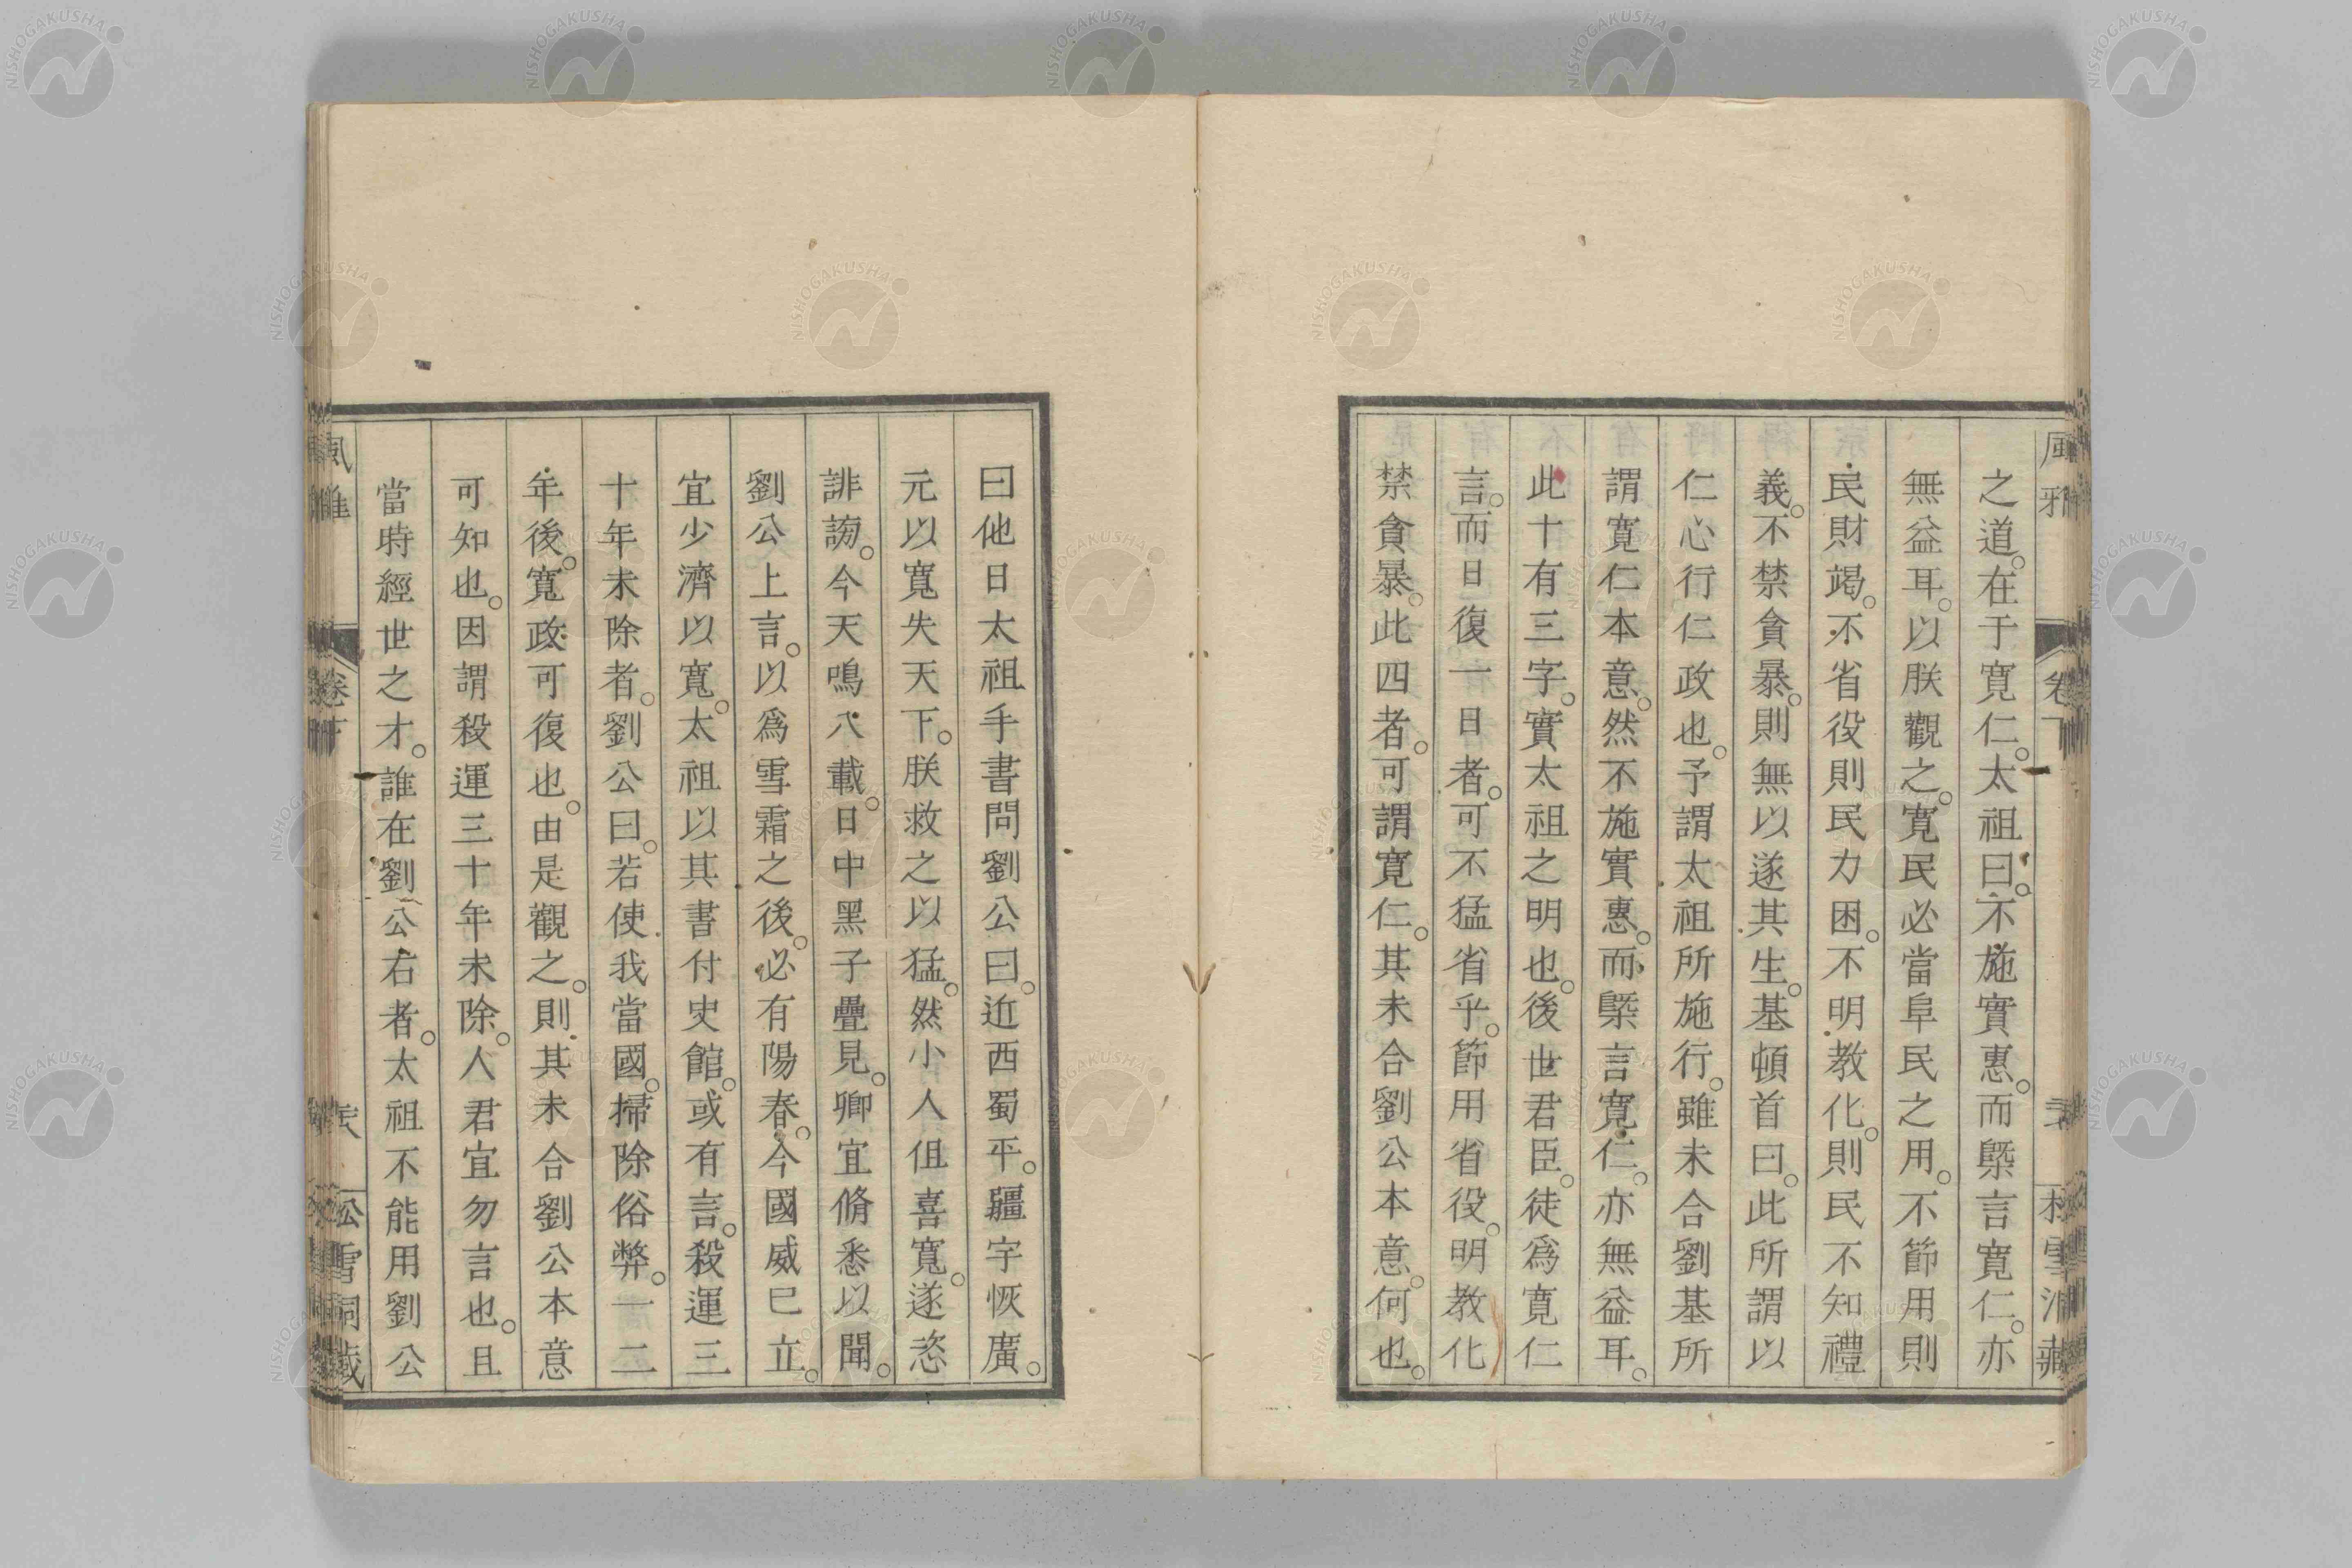 之道。在于寛仁。太祖曰。不施實惠。而槩言寛仁。亦
無益耳。以朕觀之。寛民必當阜民之用。不節用則
民財竭。不省役則民力困。不明教化。則民不知禮
義。不禁貪暴。則無以遂其生。基頓首曰。此所謂以
仁心行仁政也。予謂太祖所施行。雖未合劉基所
謂寛仁本意。然不施實惠。而槩言寛仁。亦無益耳。
此十有三字。實太祖之明也。後世君臣。徒爲寛仁
言。而日復一日者。可不猛省乎。節用省役。明教化
禁貪暴。此四者。可謂寛仁。其未合劉公本意。何也。
曰他日太祖手書問劉公曰。近西蜀平。疆宇恢廣。
元以寛失天下。朕救之以猛。然小人伹喜寛。遂恣
誹謗。今天鳴八載。日中黑子疊見。卿宜脩悉以聞。
劉公上言。以爲雪霜之後。必有陽春。今國威已立。
宜少濟以寛。太祖以其書付史館。或有言。殺運三
十年未除者。劉公曰。若使我當國。掃除俗弊。一二
年後。寛政可復也。由是觀之。則其未合劉公本意
可知也。因謂殺運三十年未除。人君宜勿言也。且
當時經世之才。誰在劉公右者。太祖不能用劉公
風雅
卷下
NISHOGAKUSHA